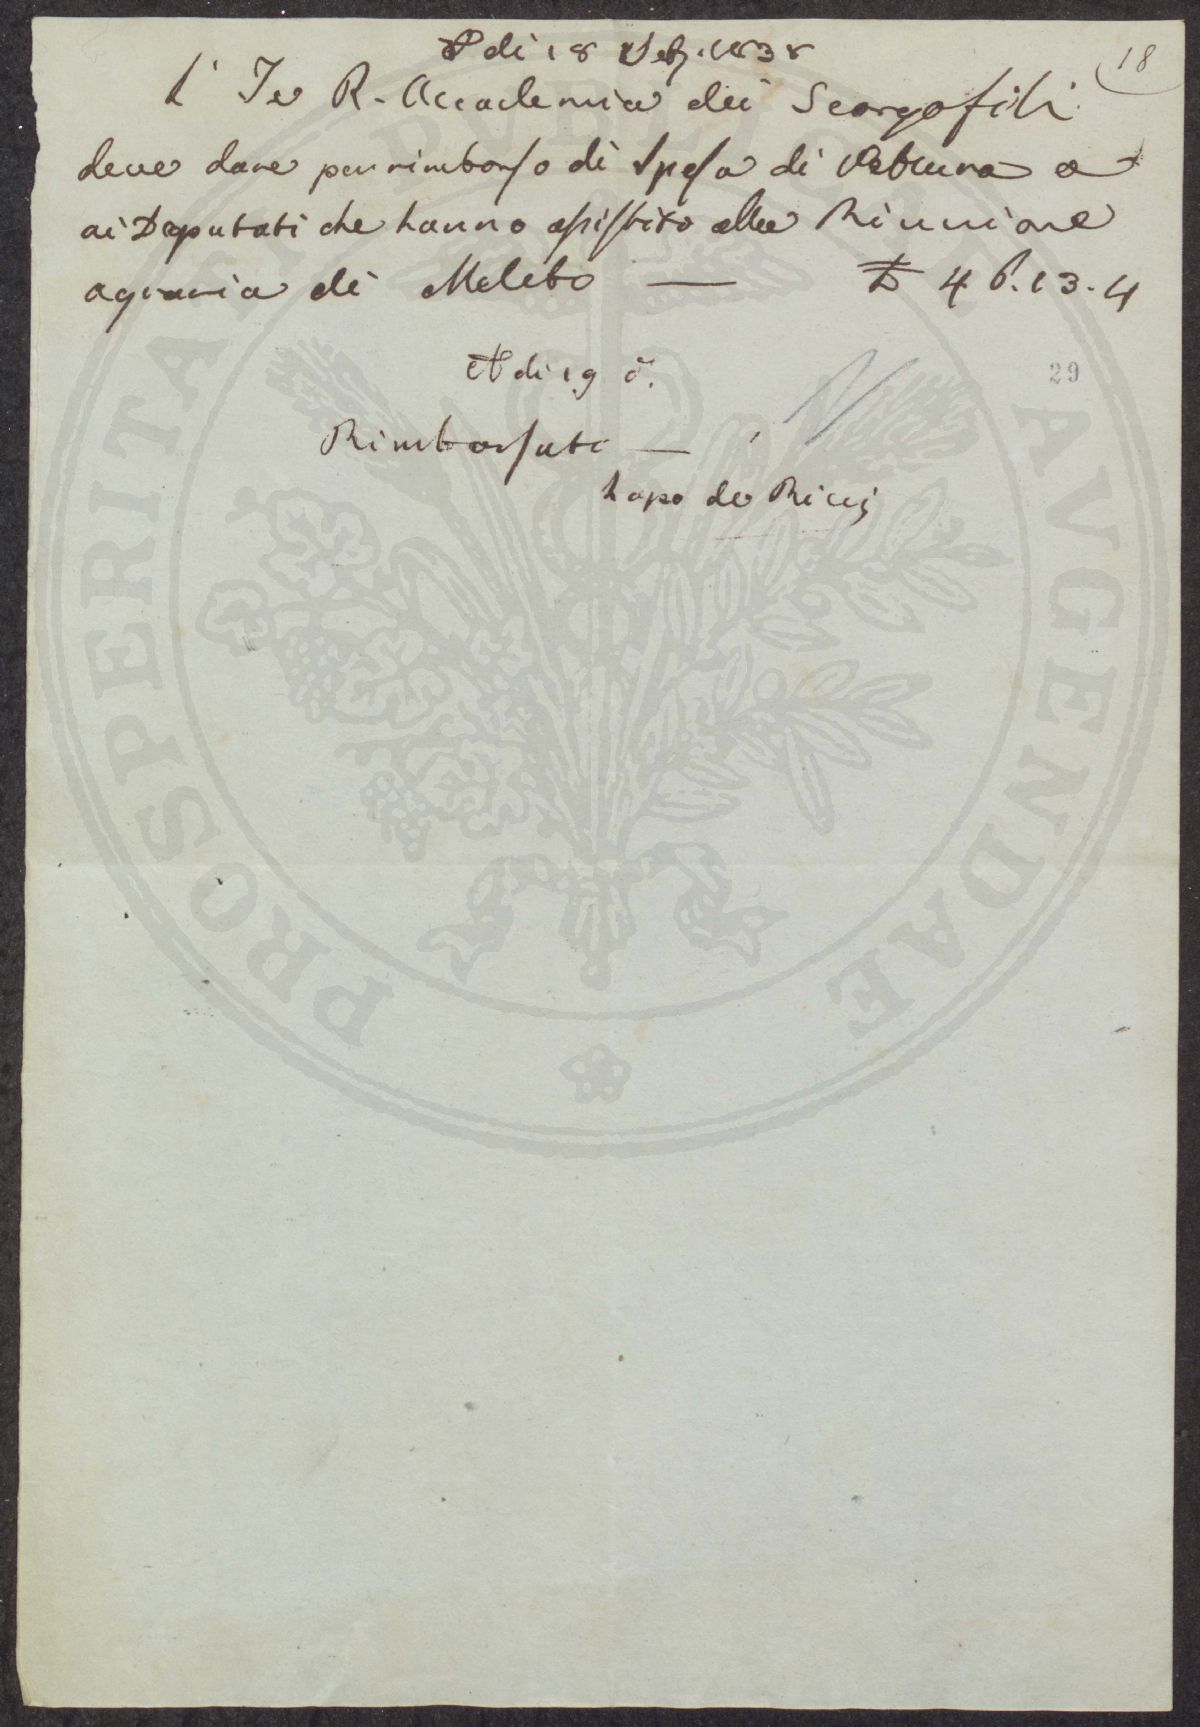 A dì 18 Set. 1838
18
L' I e R. Accademia dei Georgofili
deve dare per rimborso di spesa di Vettura a
ai Deputati che hanno assistito alla Riunione
agraria di Meleto — £ 46.13.4
A dì 19 d.
29
Rimborsati —
Lapo de Ricci
PROSPERITATI PVBLICAE AVGENDAE